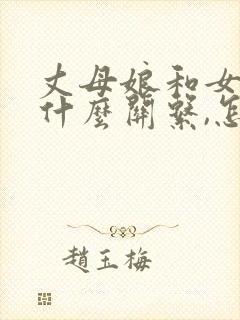 丈母娘和女
什麼關繫,怎
趙玉梅